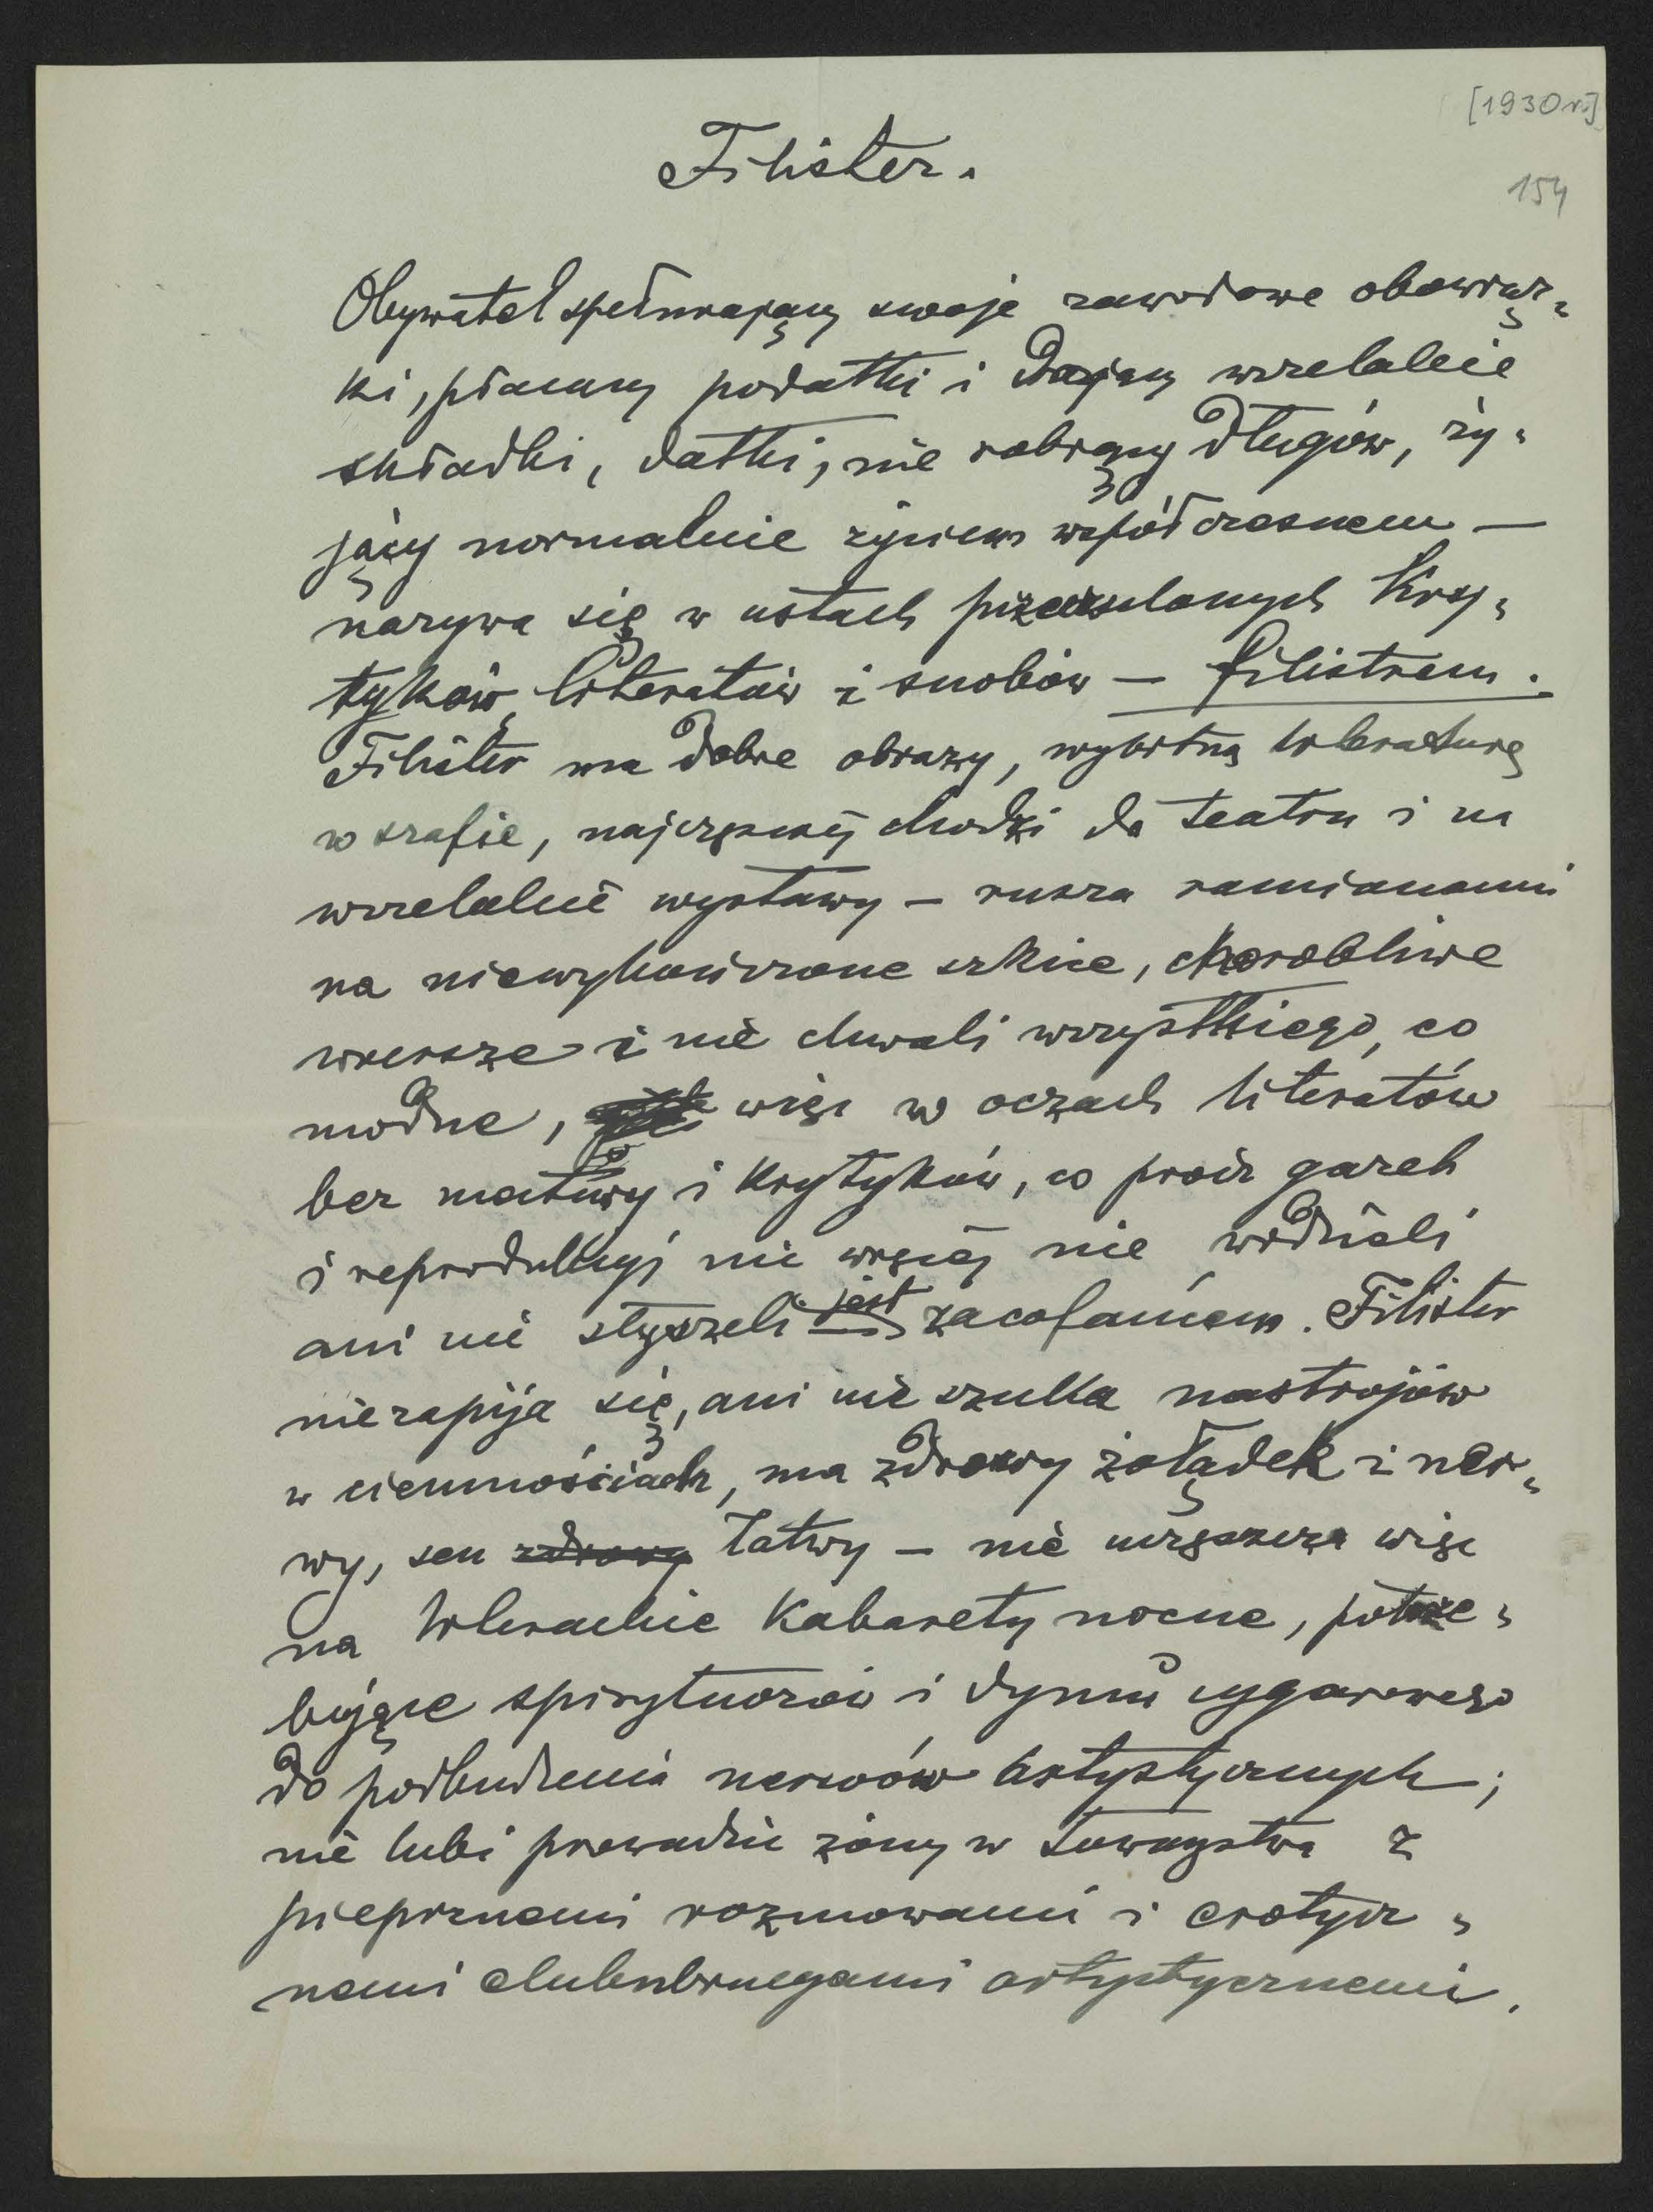 [1930 r.]
Filister.
154
Obywatel spełniający swoje zawodowe obowiąz-
ki, płacący podatki i dający wszelakie
składki, datki, nie robiący długów, ży-
jący normalnie życiem współczesnem —
nazywa się w ustach Kry-
tyków, literatów i snobów — filistrem.
Filister ma dobre obrazy, wybitną literaturę
w szafie, najczęściej chodzi do teatru i na
wszelakie wystawy — rusza ramionami
na niewykończone szkice, chorobliwe
wiersze i nie chwali wszystkiego, co
modne, więc w oczach literatów
bez matury i Krytyków, co prócz gazet
i reprodukcyj nic więcej nie widzieli
ani nie słyszeli jest zacofańcem. Filister
nie zapija się, ani nie szuka nastrojów
w ciemnościach, ma zdrowy żołądek i ner-
wy, sen zdrowy łatwy — nie uczęszcza więc
na literackie Kabarety nocne, potrze-
bujące spirytuozów i dymu cygarowego
do podbudzenia nerwów artystycznych;
nie lubi prowadzić żony w towarzystwa z
pieprznemi rozmowami i erotycz-
nemi artystycznemi.